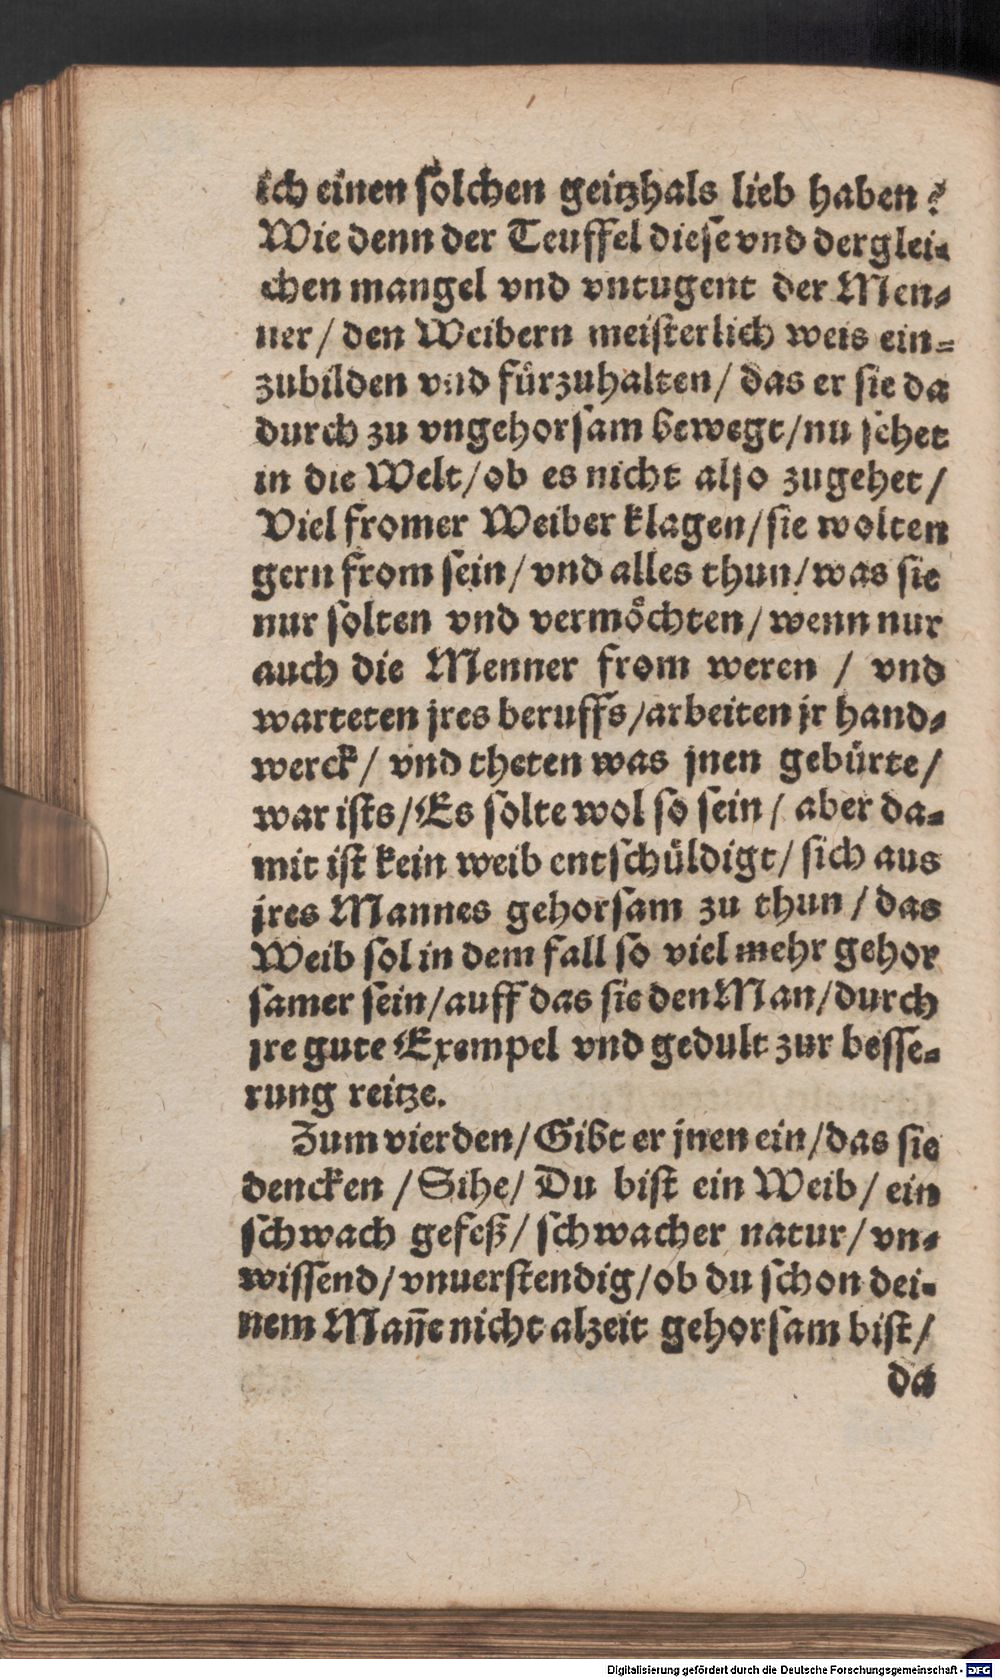 ich einen solchen geitzhals lieb haben?
Wie denn der Teuffel diese vnd derglei-
chen mangel vnd vntugent der Men-
ner/ den Weibern meisterlich weis ein-
zubilden vnd fürzuhalten/ das er sie da
durch zu vngehorsam bewegt/nu sehet
in die Welt/ob es nicht also zugehet/
Viel fromer Weiber klagen/sie wolten
gern from sein/ vnd alles thun/was sie
nur solten vnd vermöchten/ wenn nur
auch die Menner from weren / vnd
warteten jres beruffs/arbeiten jr hand-
werck/ vnd theten was jnen gebürte/
war ists/Es solte wol so sein/ aber da-
mit ist kein weib entschüldigt/ sich aus
jres Mannes gehorsam zu thun/ das
Weib sol in dem fall so viel mehr gehor
samer sein/auff das sie den Man/durch
jre gute Exempel vnd gedult zur besse-
rung reitze.
Zum vierden/Gibt er jnen ein/das sie
dencken /Sihe/ Du bist ein Weib/ ein
schwach gefeß/ schwacher natur/ vn-
wissend/vnuerstendig/ob du schon dei-
nem Mañe nicht alzeit gehorsam bist/
da
Digitalisierung gefördert durch die Deutsche Forschungsgemeinschaft - DFG